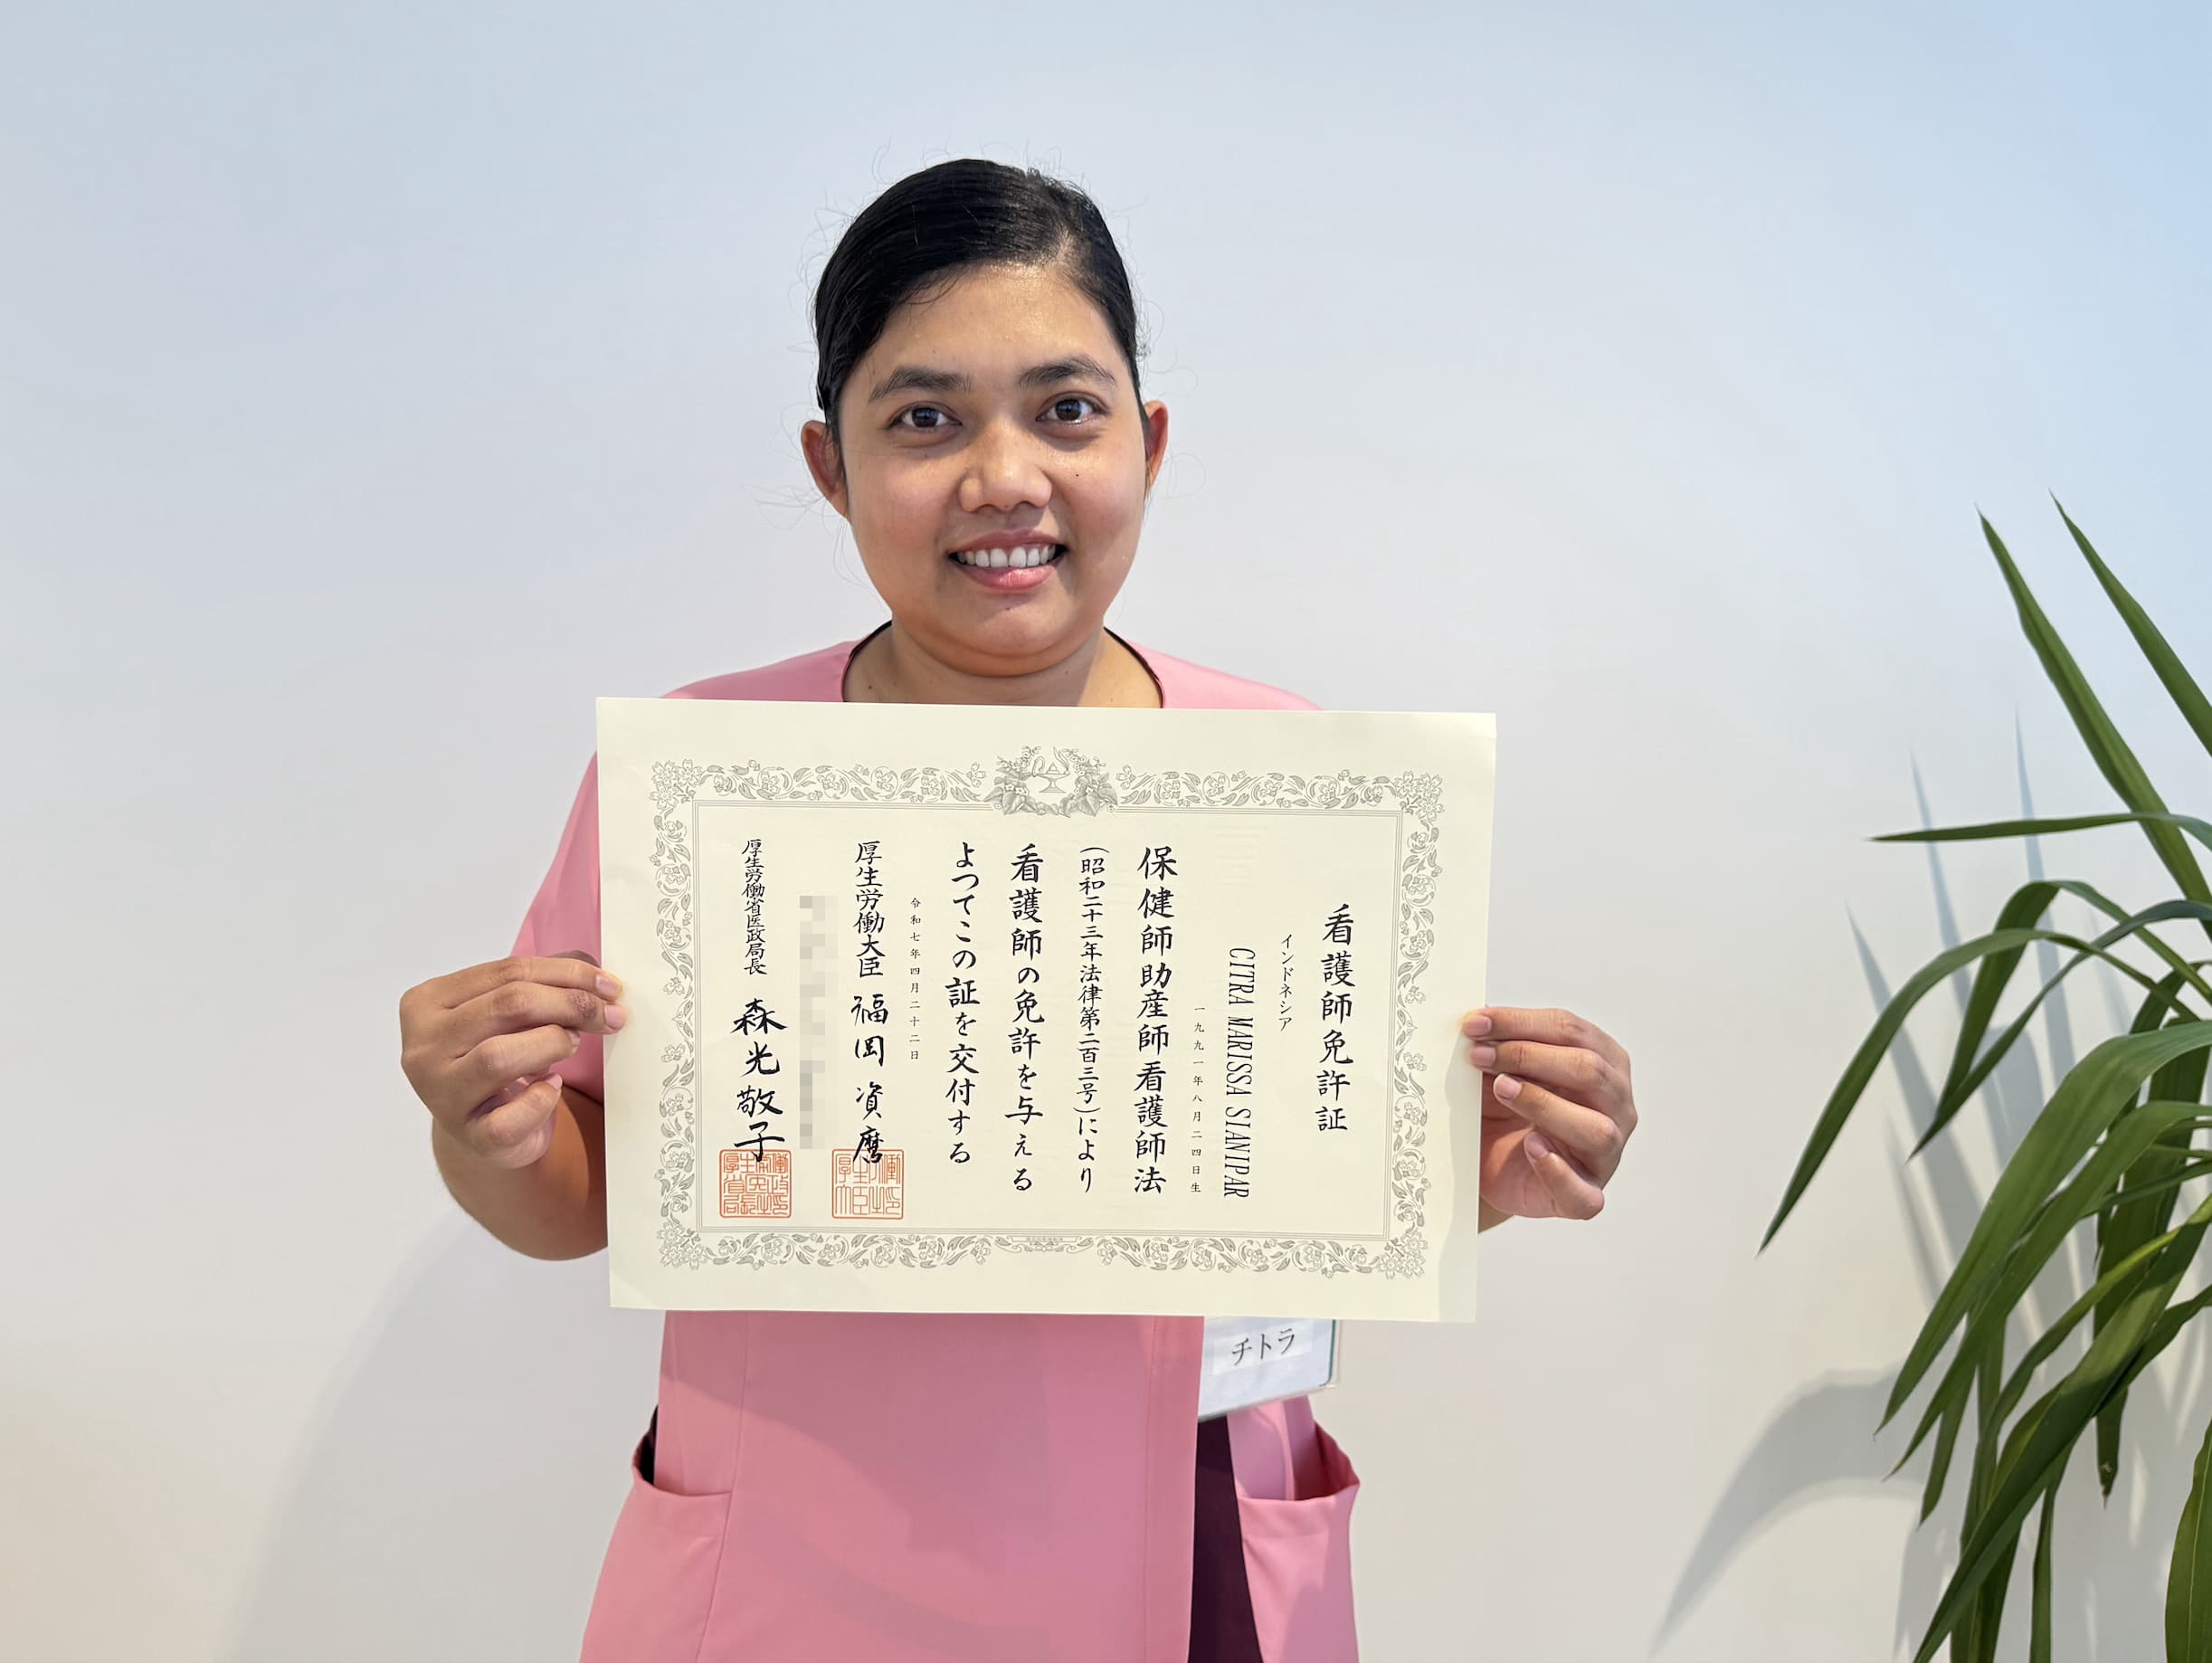 看護師免許証
インドネシア
CITRA MARISSA SIANIPAR
一九九一年八月二四日生
保健師助産師看護師法
(昭和二十三年法律第二百三号)により
看護師の免許を与える
よつてこの証を交付する
令和七年四月二十二日
厚生労働大臣 福岡資麿
厚生労働省医政局長 森光敬子
チトラ